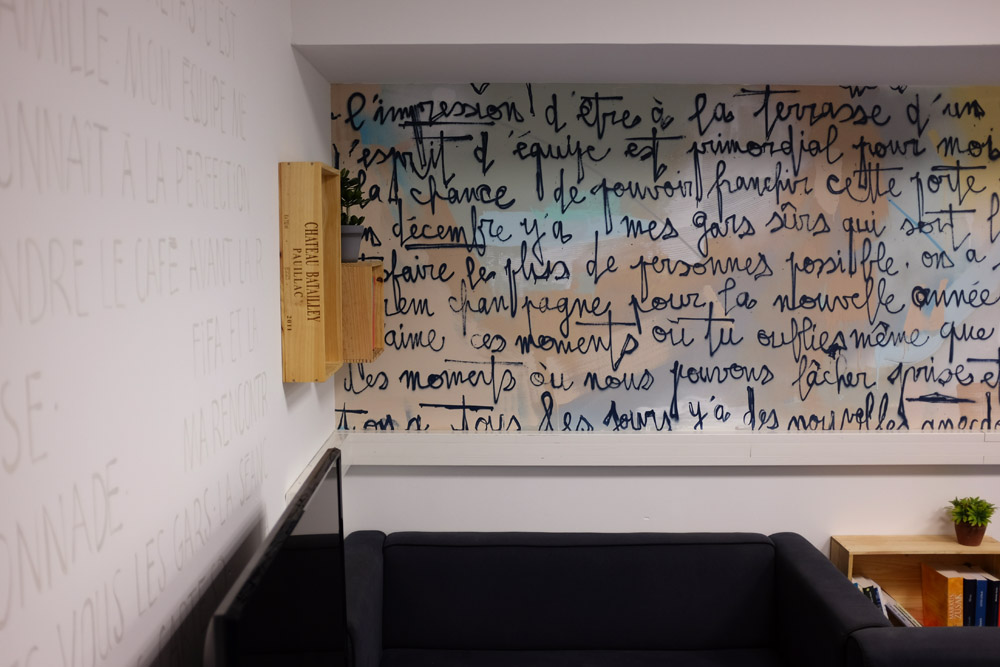 MILLE MON EQUIPE NE
A LA PERFECTION
LE CAFE AVANT
FIER ET
MA RENCONTR
SE.
ONNADE
VOUS LES GARS. LA SEU
CHATEAU BATAILLEY
PAUILLAC
2014
l'impression d'être à la terrasse d'un
l'esprit d'équipe est primordial pour moi
la chance de pouvoir franchir cette porte
décembre y'a mes gars sûrs qui sont
faire le plus de personnes possible. on a
pour la nouvelle année
aime ces moments où tu oublies même que
les moments où nous pouvons lâcher prises et
on a tous les jours y'a des nouvelles